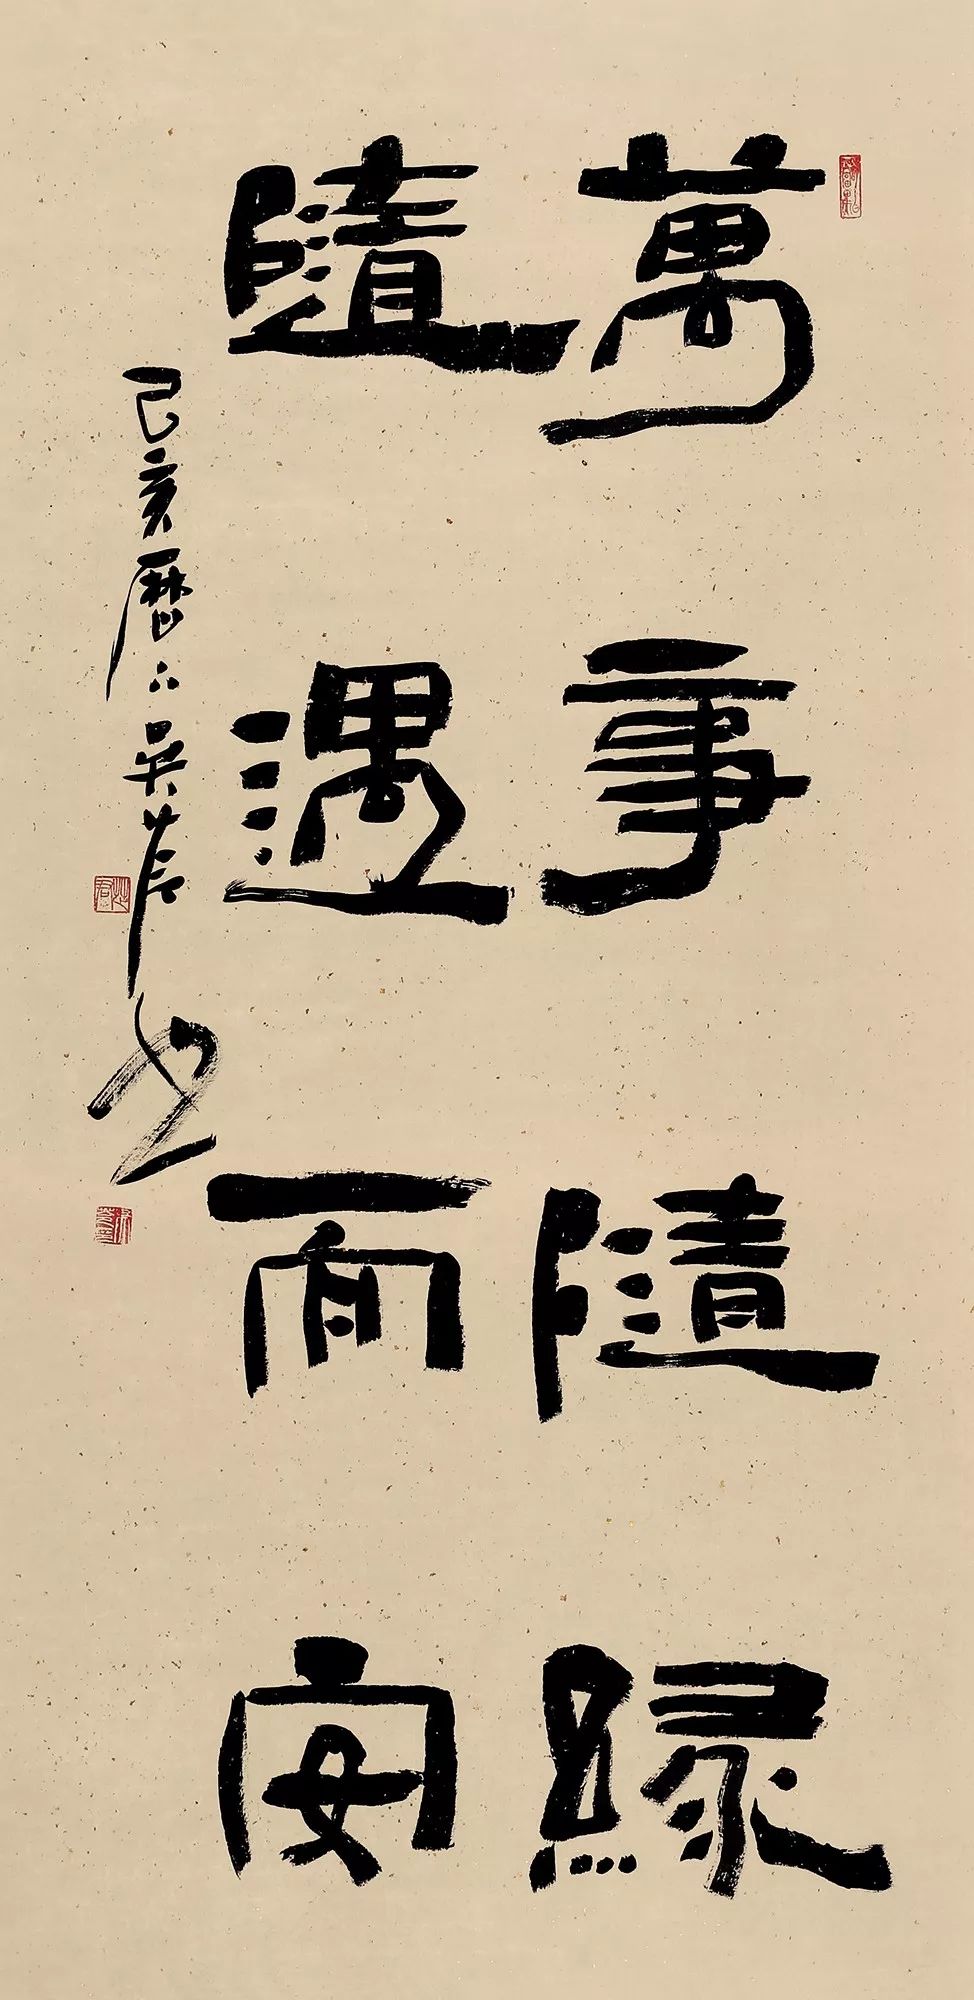 萬事隨緣
隨遇而安
己亥曆六吴茝也